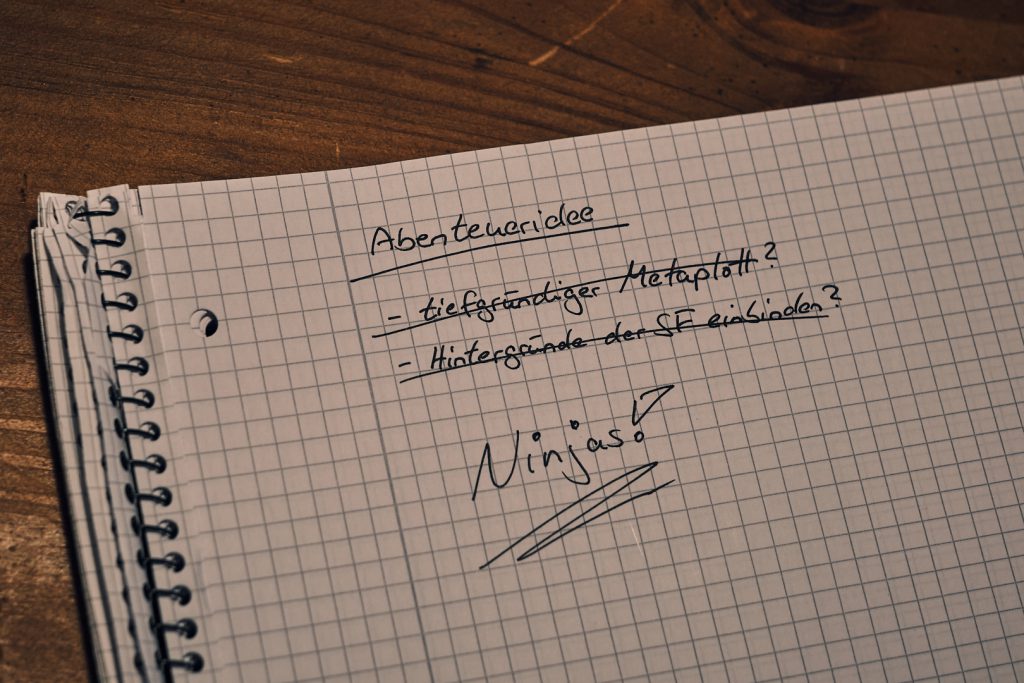 Abenteueridee
- tiefgründiger Metaplott?
- Hintergründe der SF einbinden?
Ninjas!